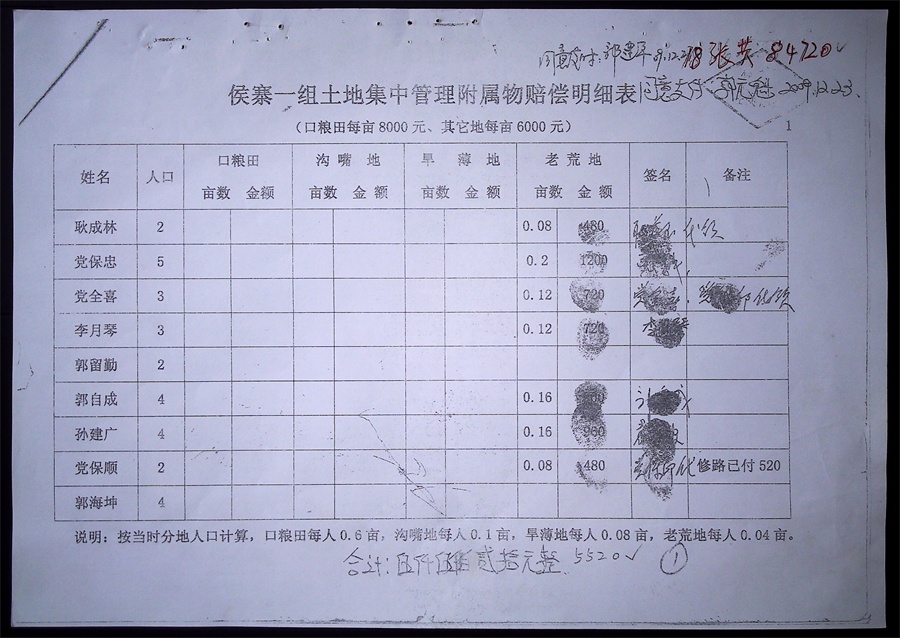 同意支付 郭建军 09.12.23 张英 84720
侯寨一组土地集中管理附属物赔偿明细表 同意支付 2009.12.23.
(口粮田每亩8000元、其它地每亩6000元) 1
姓名 人口 口粮田 沟嘴地 旱薄地 老荒地 签名 备注
亩数 金额 亩数 金额 亩数 金额 亩数 金额
耿成林 2 0.08 480 代领
党保忠 5 0.2 1200
党全喜 3 0.12 720 党全喜 代领
李月琴 3 0.12 720 李月琴
郭留勤 2
郭自成 4 0.16
孙建广 4 0.16 960
党保顺 2 0.08 480 修路已付520
郭海坤 4
说明：按当时分地人口计算，口粮田每人0.6亩，沟嘴地每人0.1亩，旱薄地每人0.08亩，老荒地每人0.04亩。
合计：伍仟伍佰贰拾元整 5520 ①